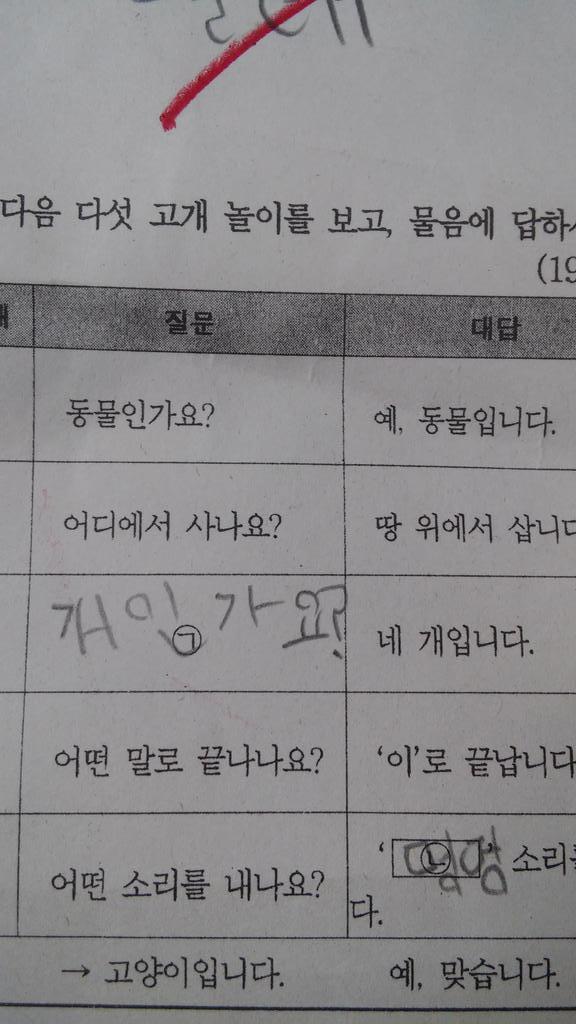 다음 다섯 고개 놀이를 보고, 물음에 답하
(19
질문 대답
동물인가요? 예, 동물입니다.
어디에서 사나요? 땅 위에서 삽니다
개인가요?
㉠ 네 개입니다.
어떤 말로 끝나나요? ‘이’로 끝납니다
어떤 소리를 내나요? ‘ ㉡ ’ 소리를
다.
→ 고양이입니다. 예, 맞습니다.